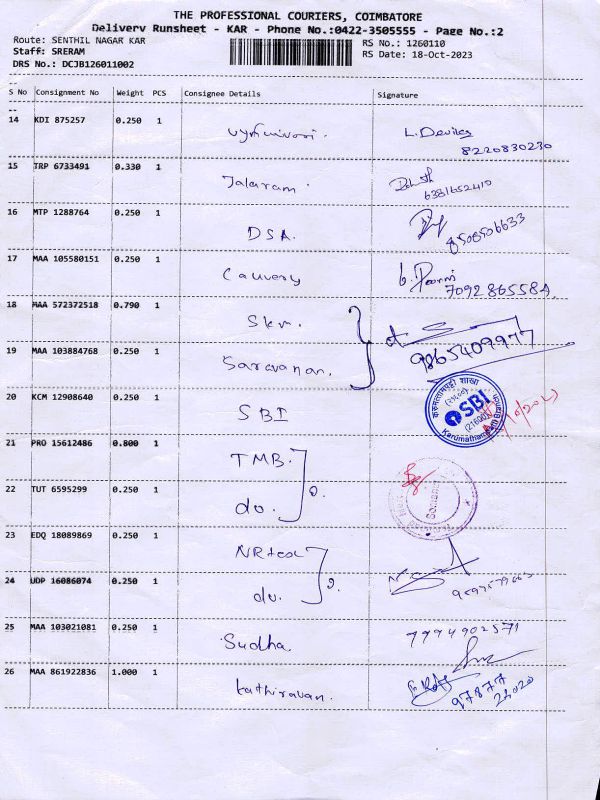 THE PROFESSIONAL COURIERS, COIMBATORE
Delivery Runsheet - KAR - Phone No.:0422-3505555 - Page No.:2
Route: SENTHIL NAGAR KAR
RS No.: 1260110
Staff: SRERAM
RS Date: 18-Oct-2023
DRS No.: DCJB126011002
S No Consignment No Weight PCS Consignee Details Signature
14 KDI 875257 0.250 1
8220830230
15 TRP 6733491 0.330 1 Jalaram.
6381652410
16 MTP 1288764 0.250 1 DSA.
8508506633
17 MAA 105580151 0.250 1 Cauvery
7092865584
18 MAA 572372518 0.790 1 Skr.
9865409977
19 MAA 103884768 0.250 1 Saravanan.
20 KCM 12908640 0.250 1 SBI
SBI
21 PRO 15612486 0.800 1 TMB.
22 TUT 6595299 0.250 1 do.
23 EDQ 18089869 0.250 1
24 UDP 16086074 0.250 1 do.
25 MAA 103021081 0.250 1 Sudha.
7794902571
26 MAA 861922836 1.000 1 kathiravan.
97877
22020